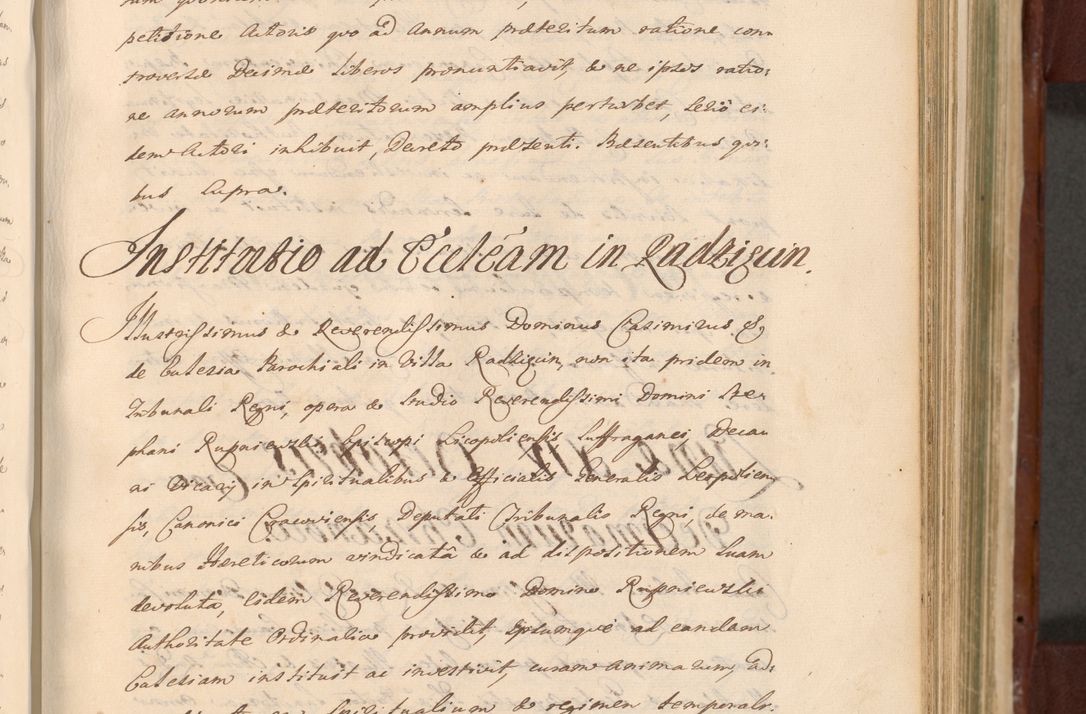 petitione Actoris quo ad annum præteritum ratione con
troversæ Decimæ liberos pronuntiavit, & ne ipsos ratio:
ne annorum præteritorum amplius perturbet, serio ei:
dem Actori inhibuit, Decreto præsenti. Præsentibus qui:
bus supra.
Institutio ad Eccl̃eam in Radzigin.
Illustrissimus & Reverendissimus Dominus Casimirus &c,
de Ecclesia Parochiali in Villa Radzigin, non ita pridem in
Tribunali Regni, opera & studio Reverendissimi Domini Ste:
phani Rupniewski Episcopi Licopoliensis Suffraganei Decan
ai Vicarij in Spiritualibus & Officialis Generalis Leopolien
sis, Canonici Cracoviensis, Deputati Tribunalis Regni, de ma:
nibus Hæreticorum vindicatâ & ad dispositionem suam
devolutâ, eidem Reverendissimo Domino Rupniewski
Authoritate Ordinaria providit, Ipsumque ad eandem
Ecclesiam instituit ac investivit, curam animarum, ad:
Spiritualium & regimen temporali: